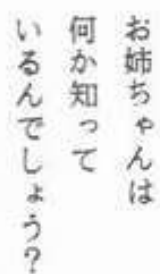 お姉ちゃんは
何か知って
いるんでしょう？